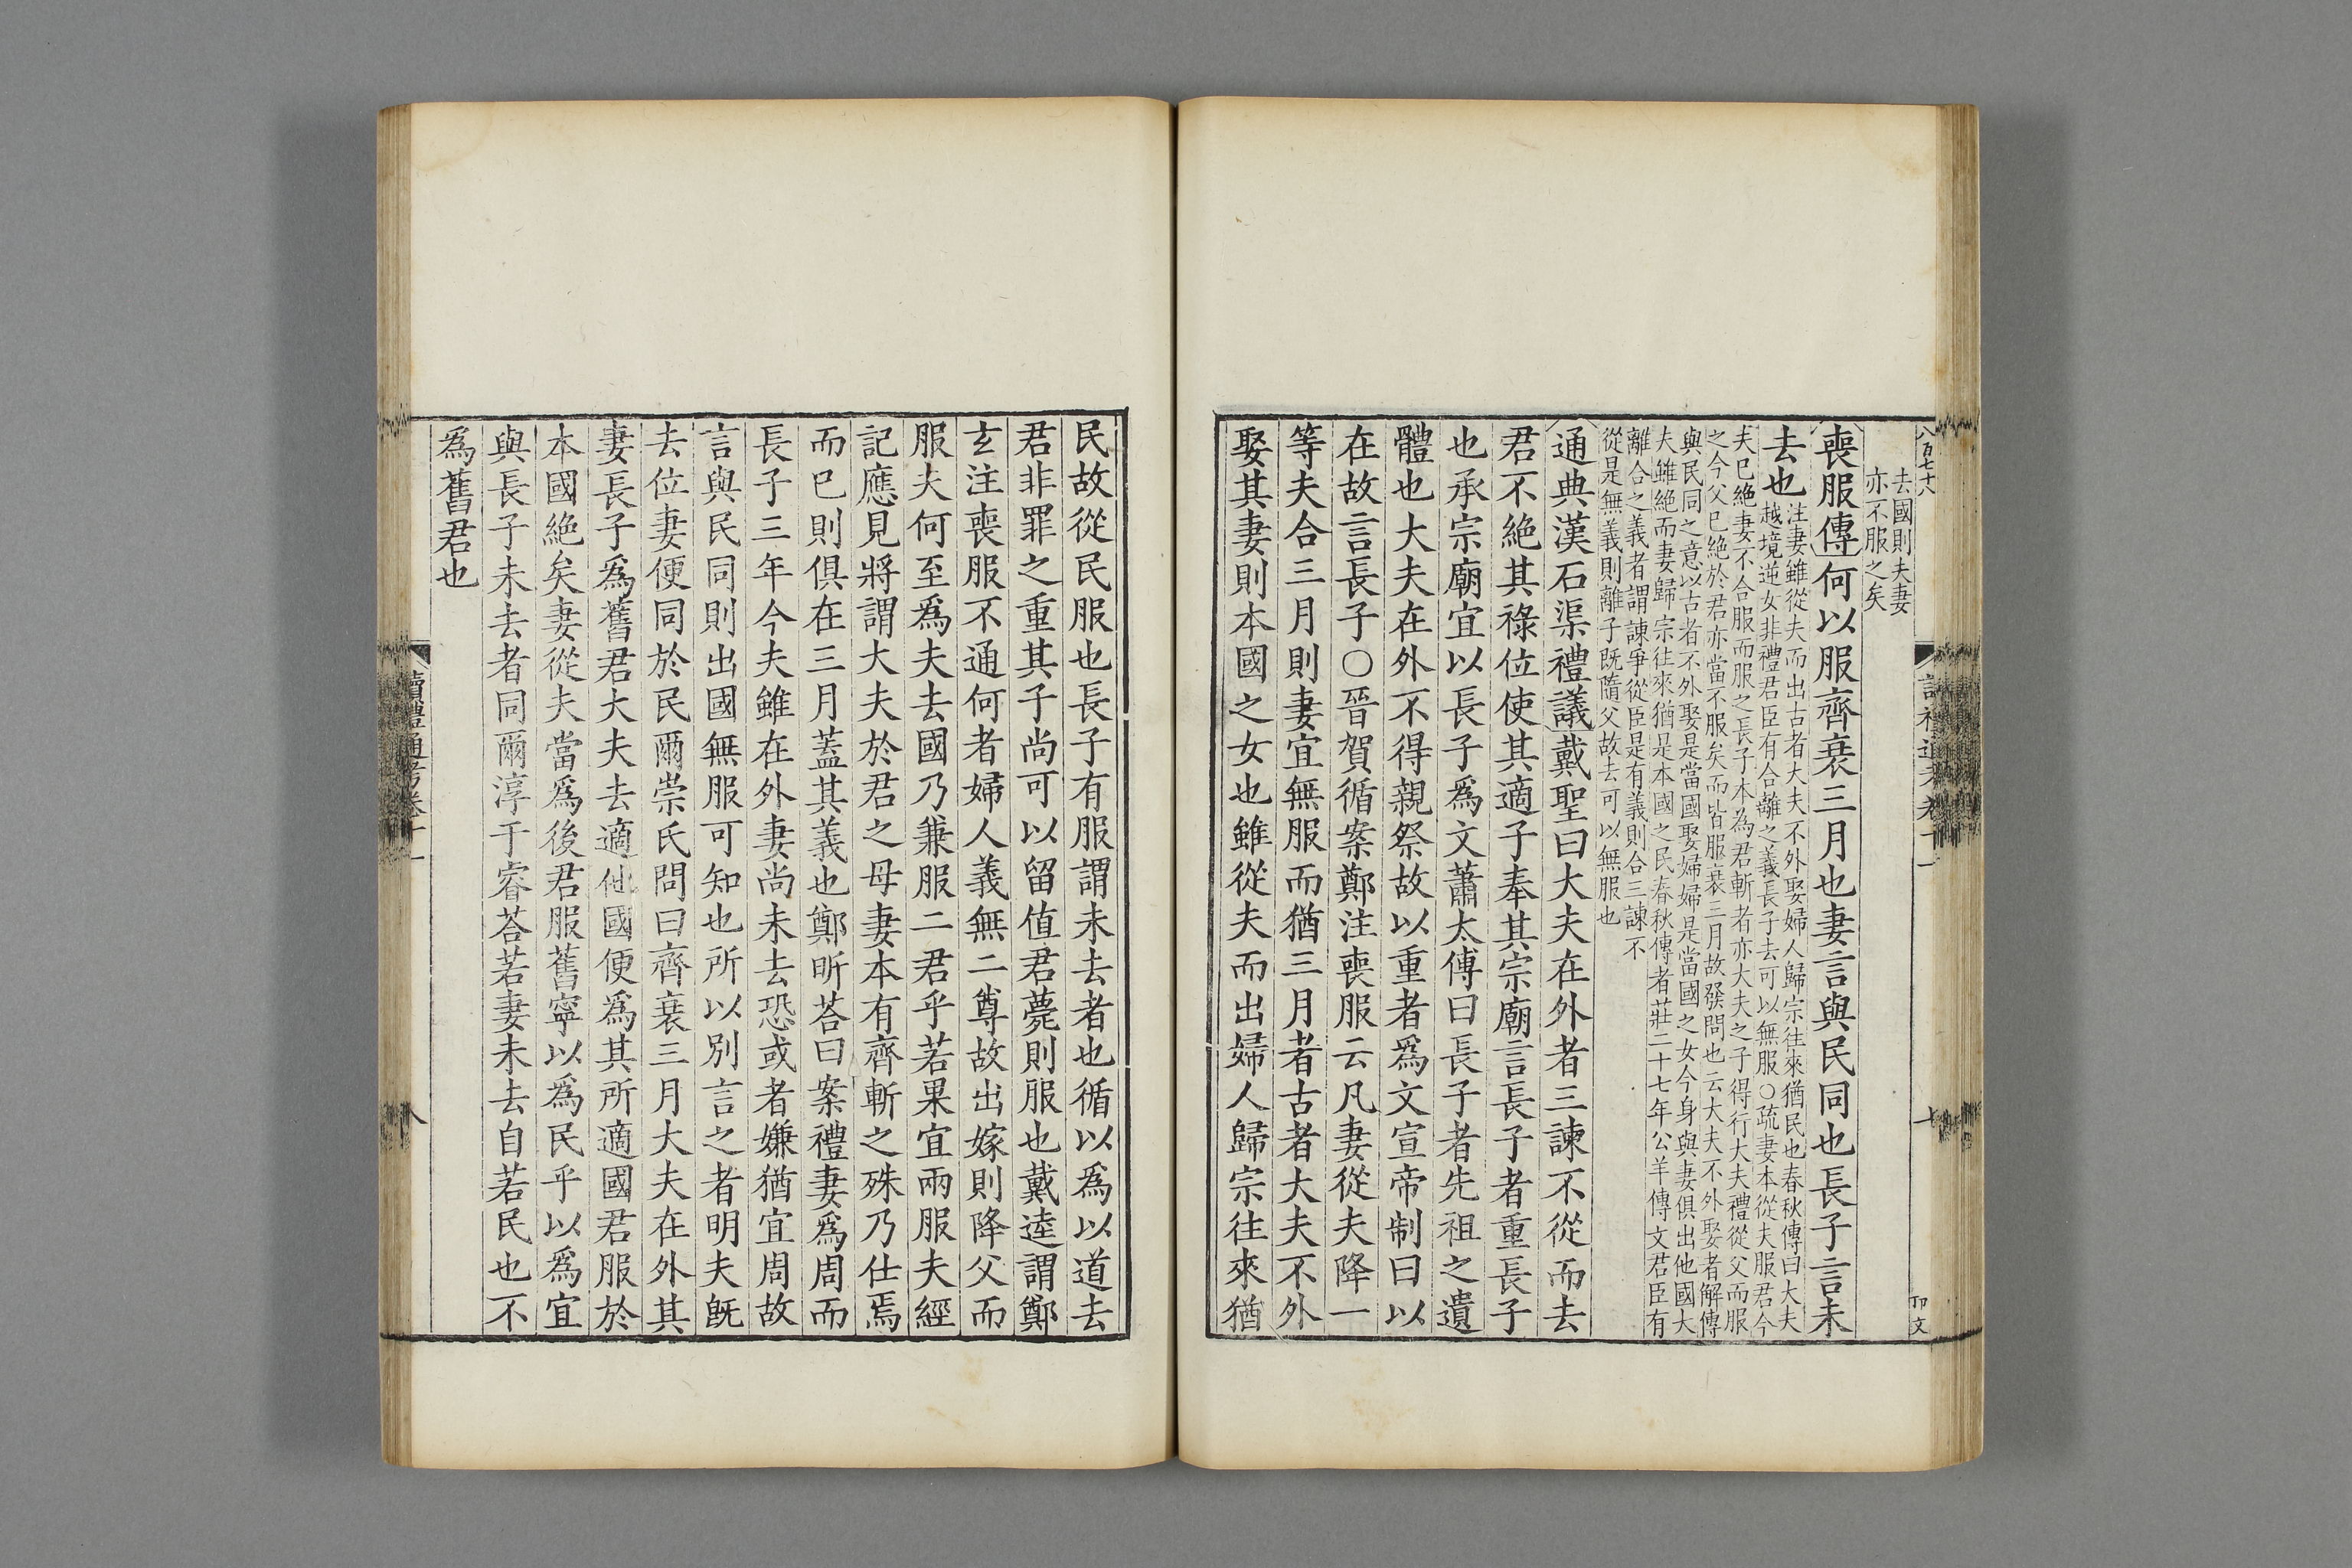 八百七十八
去國則夫妻
亦不服之矣
喪服傳何以服齊衰三月也妻言與民同也長子言未
去也
注妻雖從夫而出古者大夫不外娶婦人歸宗往來猶民也春秋傳曰大夫
越境逆女非禮君臣有合離之義長子去可以無服○疏妻本從夫服君今
夫已絶妻不合服而服之長子本為君斬者亦大夫之子得行大夫禮從父而服
之今父已絶於君亦當不服矣而皆服衰三月故發問也云大夫不外娶者解傳
與民同之意以古者不外娶是當國娶婦婦是當國之女今身與妻俱出他國大
夫雖絶而妻歸宗往來猶是本國之民春秋傳者莊二十七年公羊傳文君臣有
離合之義者謂諫爭從臣是有義則合三諫不
從是無義則離子既隨父故去可以無服也
通典漢石渠禮議戴聖曰大夫在外者三諫不從而去
君不絶其祿位使其適子奉其宗廟言長子者重長子
也承宗廟宜以長子爲文蕭太傅曰長子者先祖之遺
體也大夫在外不得親祭故以重者爲文宣帝制曰以
在故言長子○晉賀循案鄭注喪服云凡妻從夫降一
等夫合三月則妻宜無服而猶三月者古者大夫不外
娶其妻則本國之女也雖從夫而出婦人歸宗往來猶
讀禮通考卷十一
七
卬文
民故從民服也長子有服謂未去者也循以爲以道去
君非罪之重其子尚可以留值君薨則服也戴逵謂鄭
玄注喪服不通何者婦人義無二尊故出嫁則降父而
服夫何至爲夫去國乃兼服二君乎若果宜兩服夫經
記應見將謂大夫於君之母妻本有齊斬之殊乃仕焉
而已則俱在三月蓋其義也鄭昕荅曰案禮妻爲周而
長子三年今夫雖在外妻尚未去恐或者嫌猶宜周故
言與民同則出國無服可知也所以別言之者明夫既
去位妻便同於民爾崇氏問曰齊衰三月大夫在外其
妻長子爲舊君大夫去適他國便爲其所適國君服於
本國絶矣妻從夫當爲後君服舊寧以爲民乎以爲宜
與長子未去者同爾淳于睿荅若妻未去自若民也不
爲舊君也
讀禮通考卷十一
八